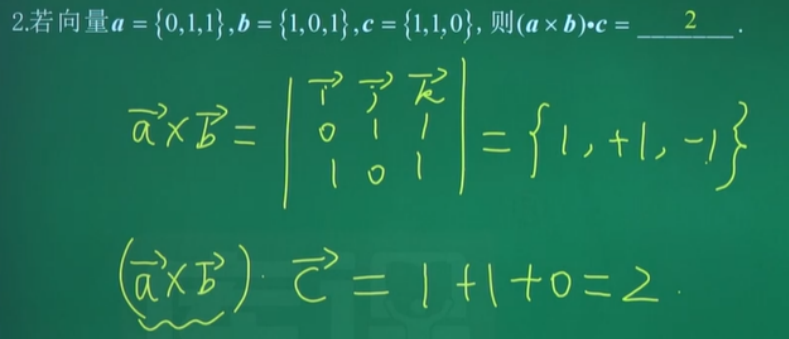 2.若向量a = {0,1,1},b = {1,0,1},c = {1,1,0}, 则(a × b)•c = 2 .
a⃗×b⃗ = | i⃗ j⃗ k⃗ |
0 1 1
1 0 1
= {1, +1, -1}
(a⃗×b⃗)· c⃗ = 1+1+0=2.